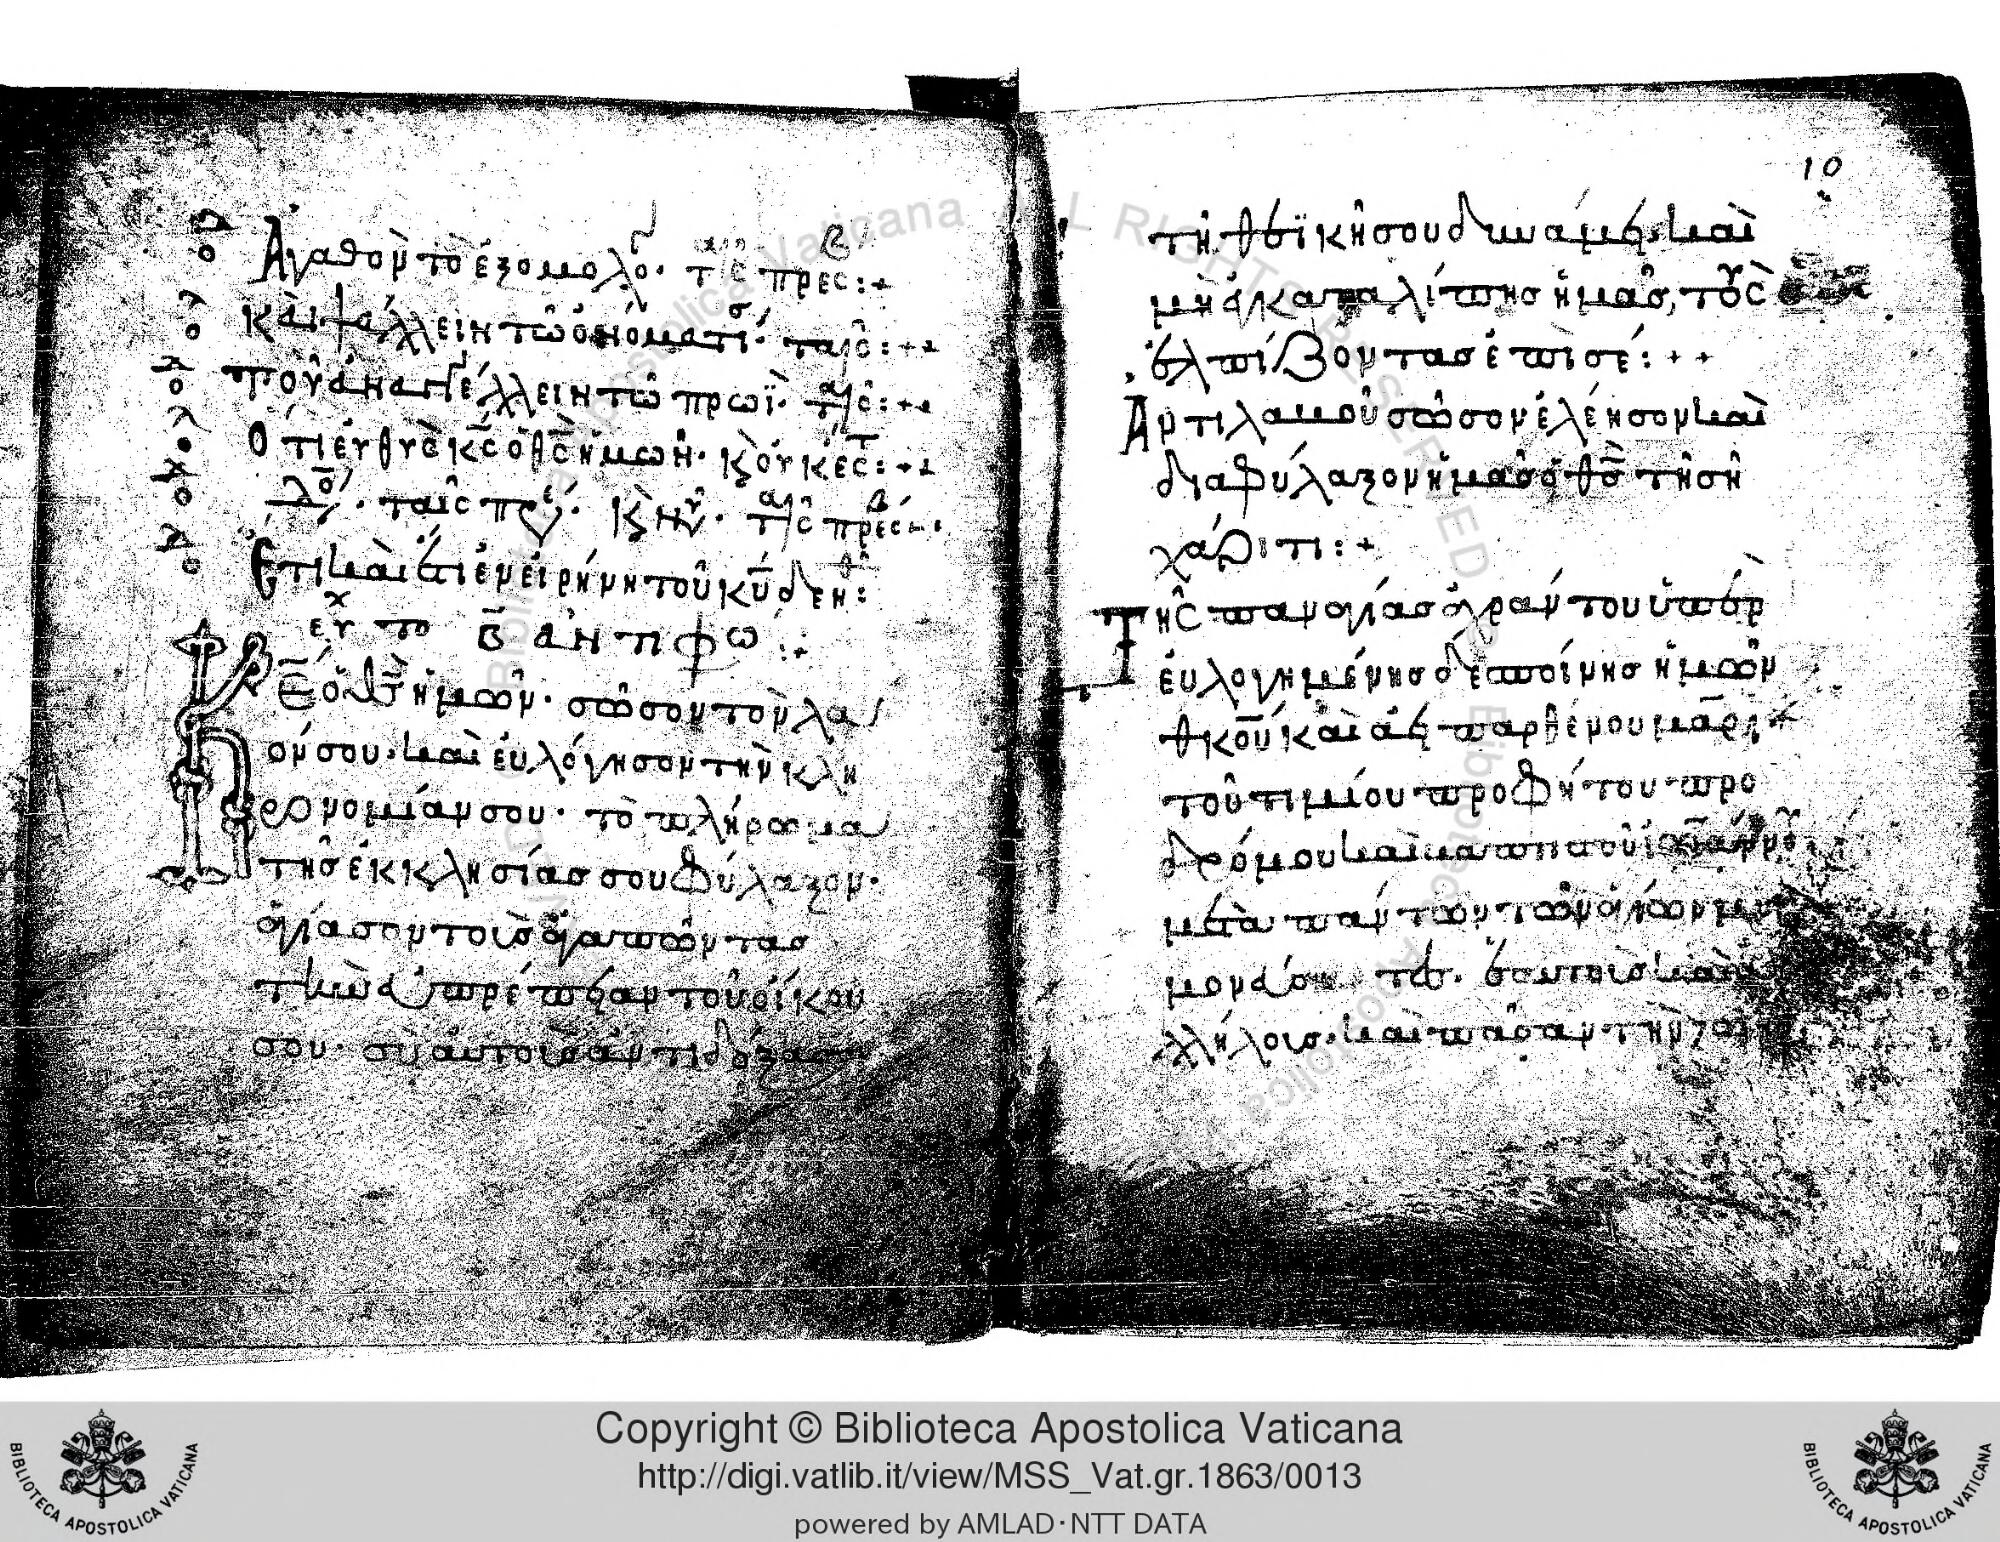 Ἀγαθὸν τὸ ἐξομολό· τ πρες:+
καὶ ψάλλειν τῶ ὀνόματί σ ταῖς:++
τοῦ ἀναγγέλλειν τῶ πρωῒ· ταῖς:++
Ὅτι εὐθὺς κς ὁ θς ἡμῶν·
ταῖς
Ἔτι καὶ ἔτι ἐν εἰρήνη τοῦ κυ δεη:
ευχ το β αντιφω:+
Κε ὁ θς ἡμῶν· σῶσον τὸν λα
όν σου· καὶ εὐλόγησον τὴν κλη
ρονομίαν σου· τὸ πλήρωμα
τῆς ἐκκλησίας σου φύλαξον·
ἁγίασον τοὺς ἀγαπῶντας
τὴν εὐπρέπειαν τοῦ οἴκου
σου· σὺ αὐτοὺς ἀντιδόξασον
10
τῆ θεϊκῆ σου δυνάμει· καὶ
μὴ ἐγκαταλίπης ἡμᾶς, τοὺς
ἐλπίζοντας ἐπὶ σέ:++
Ἀντιλαμοῦ σῶσον ἐλέησον καὶ
διαφύλαξον ἡμᾶς ὁ θς τῆ σῆ
χάριτι:+
Τῆς παναγίας ἀχράντου ὑπὲρ
εὐλογημένης δεσποίνης ἡμῶν
θκου καὶ ἀει παρθένου μαρι
τοῦ τιμίου προφήτου προ
δρόμου καὶ βαπτιστοῦ ἰωάννου
μετὰ πάντων τῶν ἁγίων μνη
μονεύσ ἑαυτοὺς καὶ ἀ
λλήλοις· καὶ πᾶσαν τὴν ζω
Copyright © Biblioteca Apostolica Vaticana
http://digi.vatlib.it/view/MSS_Vat.gr.1863/0013
powered by AMLAD·NTT DATA
BIBLIOTECA APOSTOLICA VATICANA
BIBLIOTECA APOSTOLICA VATICANA